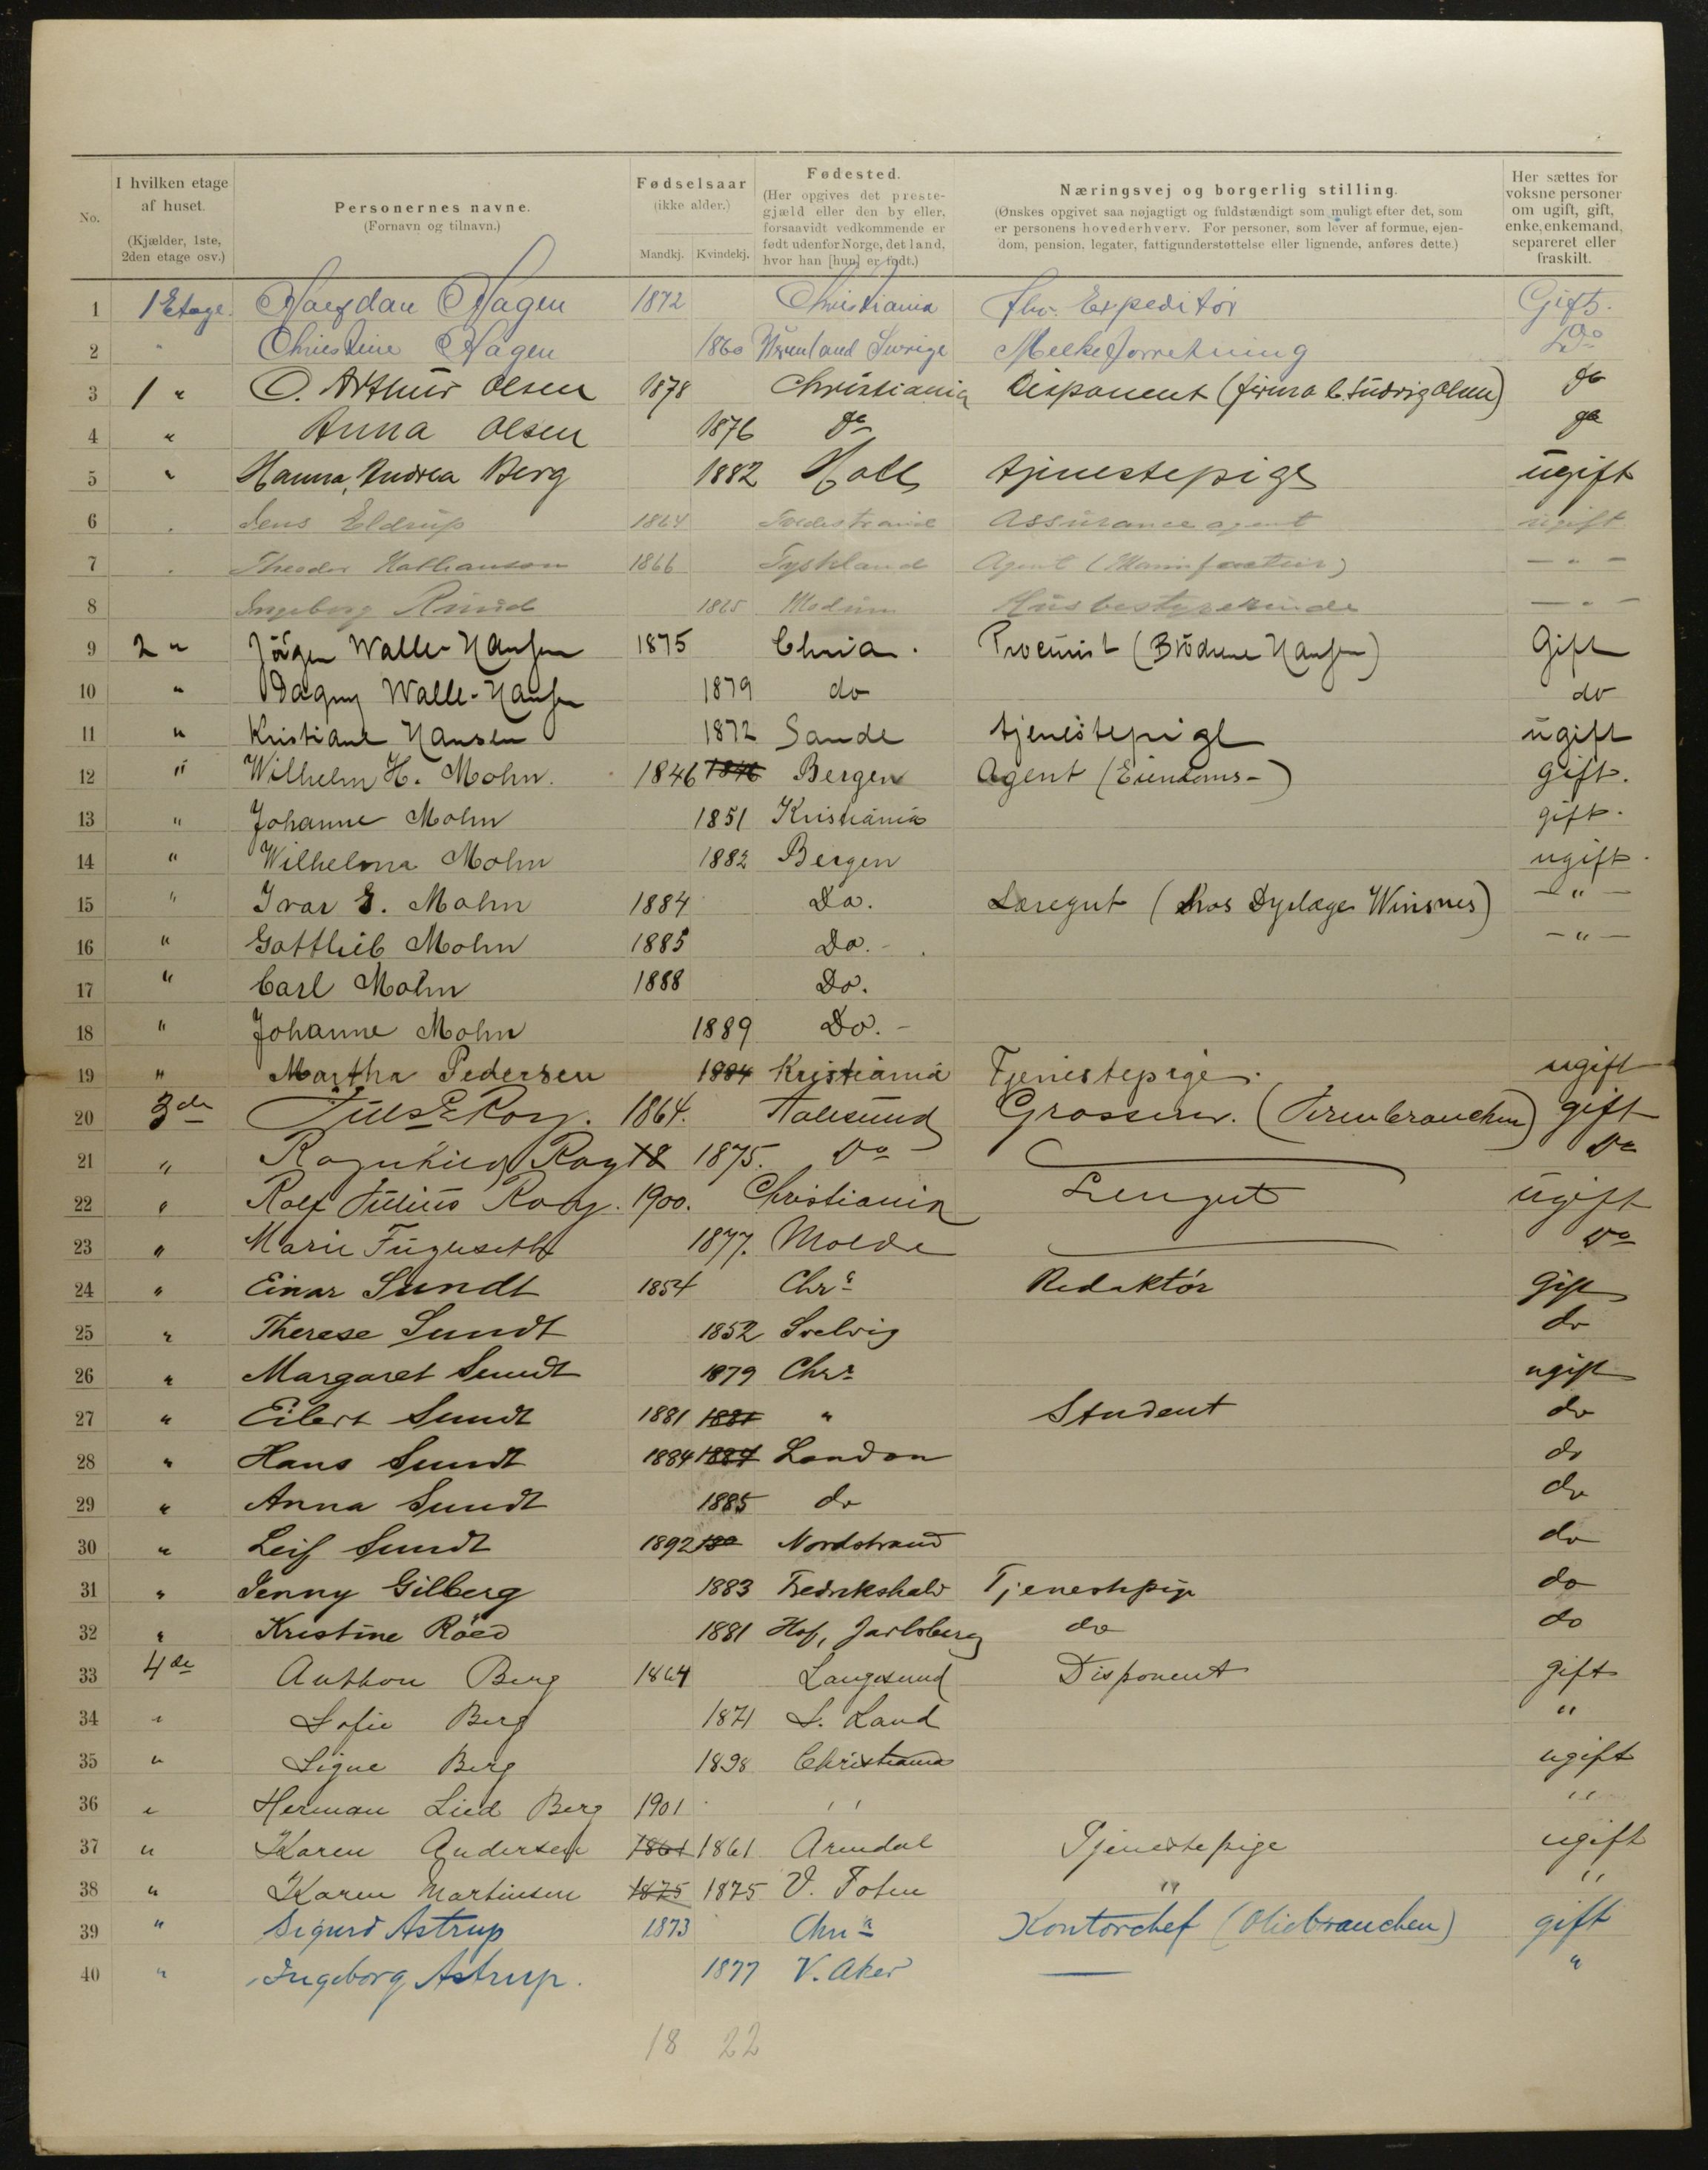 No. I hvilken etage af huset. (Kjælder, 1ste, 2den etage osv.) Personernes navne. (Fornavn og tilnavn.) Fødselsaar (ikke alder.) Mandkj. Kvindekj. Fødested. (Her opgives det prestegjæld eller den by eller, forsaavidt vedkommende er født udenfor Norge, det land, hvor han [hun] er født.) Næringsvej og borgerlig stilling. (Ønskes opgivet saa nøjagtigt og fuldstændigt som muligt efter det, som er personens hovederhverv. For personer, som lever af formue, ejendom, pension, legater, fattigunderstøttelse eller lignende, anføres dette.) Her sættes for voksne personer om ugift, gift, enke, enkemand, separeret eller fraskilt.
1 1 Etage. Hagen 1872 Christiania Expeditör Gift.
2 " Christine Hagen 1860 Sverige Melkeforretning Do
3 1 " O. Arthur Olsen 1878 Christiania Disponent (firma C. Ludvig Olsen) do
4 " Anna Olsen 1876 do do
5 " Hanna Andrea Berg 1882 tjenestepige ugift
6 " Jens Eldrup 1864 Tvedestrand Assurance agent ugift
7 " Theodor Nathanson 1866 Tyskland Agent (Manufactur) — " —
8 Ingeborg Ruud 1865 Modum Husbestyrerinde — " —
9 2 " Jörgen Walle-Hansen 1875 Chria. Procurist (Brödrene Hansen) Gift
10 " Dagny Walle-Hansen 1879 do do
11 " Kristiane Hansen 1872 Sande tjenestepige ugift
12 " Wilhelm H. Mohn. 1846 1846 Bergen Agent (Eiendoms-) gift.
13 " Johanne Mohn 1851 Kristiania gift.
14 " Wilhelma Mohn 1882 Bergen ugift.
15 " Ivar E. Mohn 1884 Do. Læregut (hos Dyrlæge Winsnes) — " —
16 " Gottlieb Mohn 1885 Do. — " —
17 " Carl Mohn 1888 Do.
18 " Johanne Mohn 1889 Do. -
19 " Martha Pedersen 1884 Kristiania Tjenestepige. ugift
20 3de 1864. Aalesund Grosserer. gift
21 " 18 1875. Do Do
22 " Rolf Julius 1900. Christiania ugift
23 " Marie Fugleseth 1877. Molde Do
24 " Einar Sundt 1854 Chra Redaktör Gift
25 " Therese Sundt 1852 Svelvig do
26 " Margaret Sundt 1879 Chra ugift
27 " Eilert Sundt 1881 1881 " Student do
28 " Hans Sundt 1884 1884 London do
29 " Anna Sundt 1885 do do
30 " Leif Sundt 1892 Nordstrand do
31 " Jenny Gilberg 1883 Fredrikshald Tjenestepige do
32 " Kristine Röed 1881 Hof, Jarlsberg do do
33 4de Anthon Berg 1864 Langesund Disponent gift
34 " Sofie Berg 1871 S. Land "
35 " Signe Berg 1898 Christiania ugift
36 " Herman Lied Berg 1901 " "
37 " Karen Andersen 1861 1861 Arendal Tjenestepige ugift
38 " Karen Martinsen 1875 1875 V. Toten " "
39 " Sigurd Astrup 1873 Chra Kontorchef (Oliebranchen) gift
40 " Ingeborg Astrup. 1877 V. Aker — "
18 22